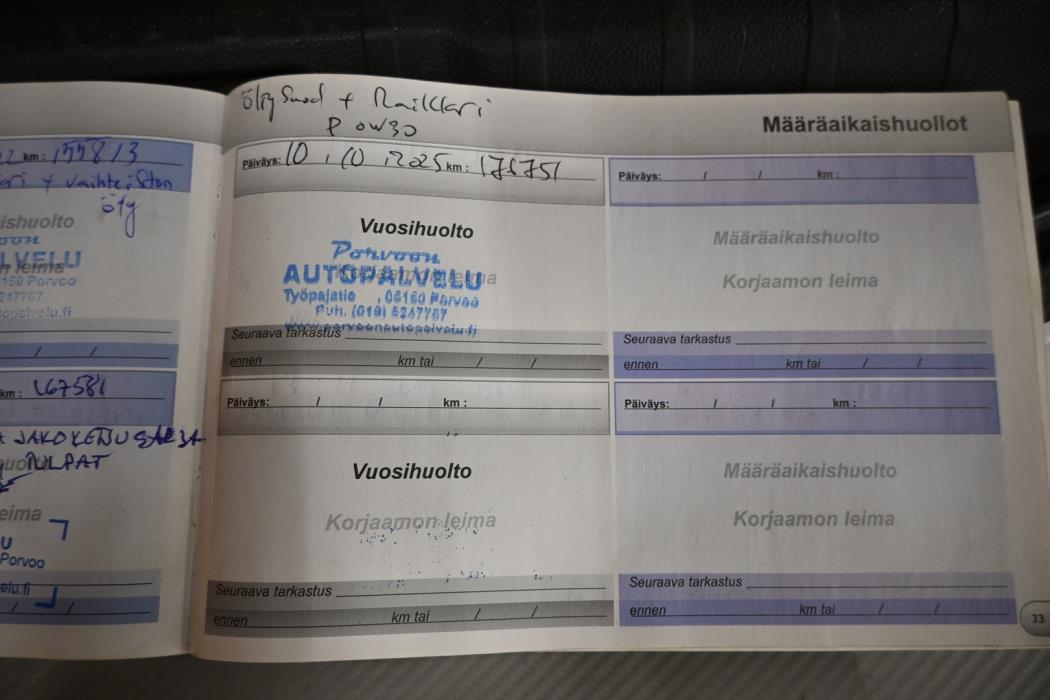 km : 155813
+ vaihteiston
öljy
ishuolto
LVELU
Porvoo
247767
km : 167581
JAKOKETJUSARJA
TULPAT
eima
U
Porvoo
elu.fi
/ /
+ Raikkari
Määräaikaishuollot
Päiväys: 10 / 10 / 2025 km :
Vuosihuolto
Porvoon
AUTOPALVELU
Työpajatie , 06150 Porvoo
Puh. (019) 5247767
www.porvoonautopalvelu.fi
Seuraava tarkastus
ennen km tai / /
Päiväys: / / km :
Vuosihuolto
Korjaamon leima
Seuraava tarkastus
ennen km tai / /
Päiväys: / / km :
Määräaikaishuolto
Korjaamon leima
Seuraava tarkastus
ennen km tai / /
Päiväys: / / km :
Määräaikaishuolto
Korjaamon leima
Seuraava tarkastus
ennen km tai / /
33